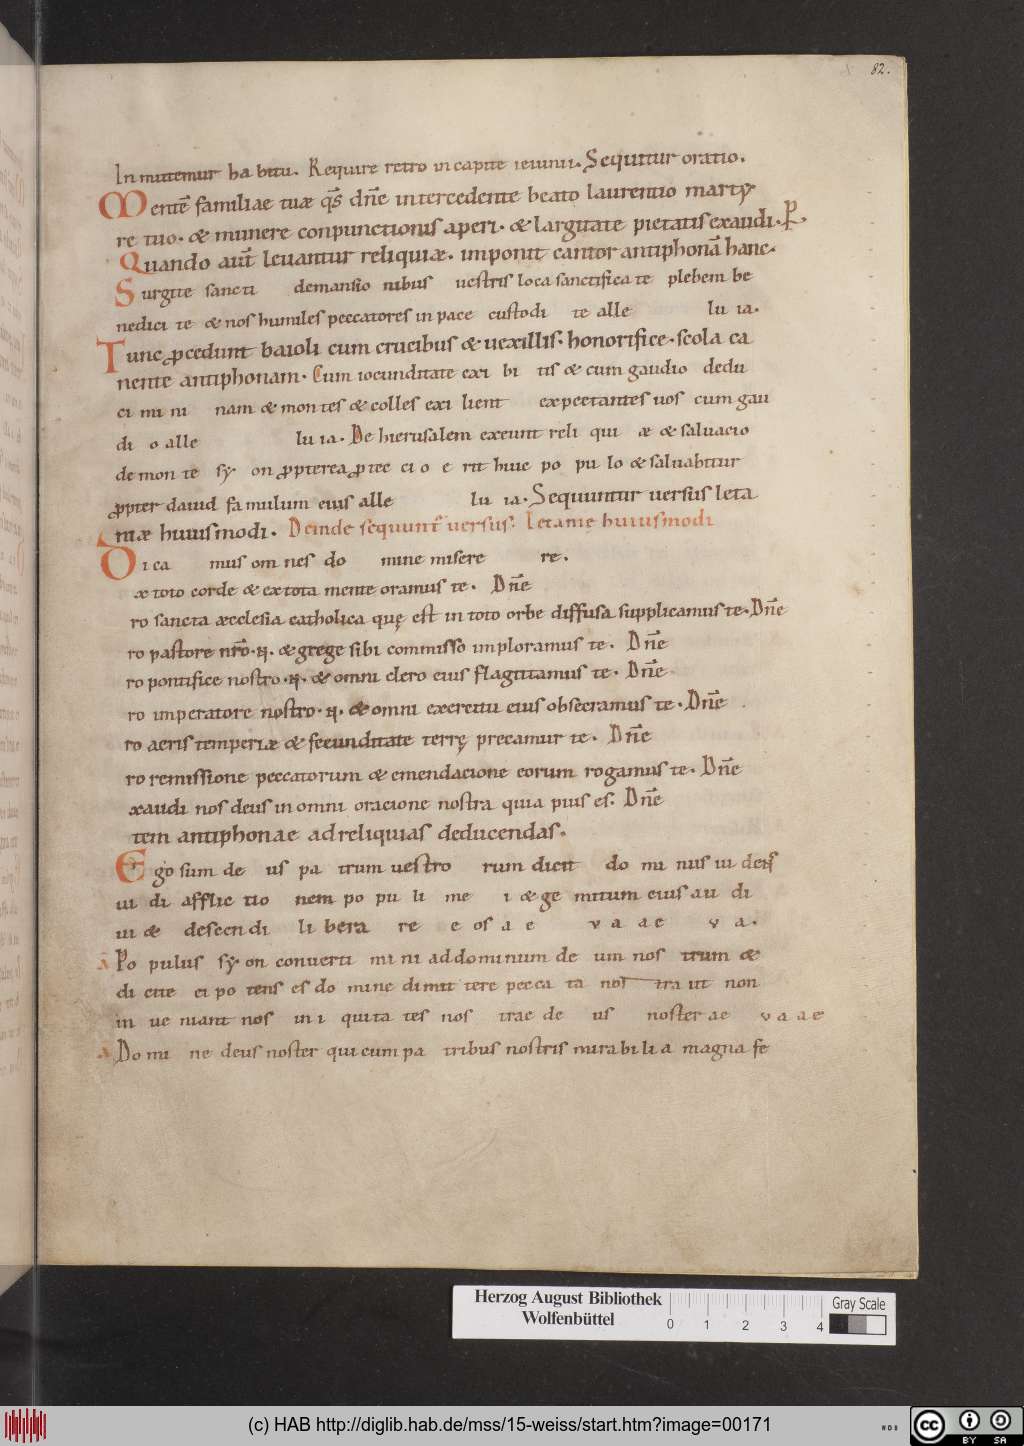 82.
Inmutemur ha bitu. Require retro in capite ieiunii. Sequitur oratio.
Mentē familiae tuæ qs̄ dn̄e intercedente beato laurentio marty
re tuo. & munere conpunctionis aperi. & largitate pietatis exaudi. P.
Quando aut̄ leuantur reliquiæ. imponit cantor antiphonā hanc.
Surgite sancti demansio nibus uestris loca sanctifica te plebem be
nedici te & nos humiles peccatores in pace custodi te alle lu ia.
Tunc pcedunt baioli cum crucibus & uexillis. honorifice. scola ca
nente antiphonam. Cum iocunditate exi bi tis & cum gaudio dedu
ci mi ni nam & montes & colles exi lient expectantes uos cum gau
di o alle lu ia. De hierusalem exeunt reli qui æ & saluacio
de mon te sy on ppterea ptec ci o e rit huic po pu lo & saluabitur
ppter dauid fa mulum eius alle lu ia. Sequuntur uersus leta
niæ huiusmodi. Deinde sequunt̄ uersus. letanie huiusmodi
Di ca mus om nes do mine misere re.
æ toto corde & ex tota mente oramus te. Dn̄e
ro sancta æcclesia catholica quę est in toto orbe diffusa supplicamus te. Dn̄e
ro pastore nr̄o. & grege sibi commisso imploramus te. Dn̄e
ro pontifice nostro. & omni clero eius flagitamus te. Dn̄e
ro imperatore nostro. & omni exercitu eius obsecramus te. Dn̄e
ro aeris temperiæ & fecunditate terrę precamur te. Dn̄e
ro remissione peccatorum & emendacione eorum rogamus te. Dn̄e
æxaudi nos deus in omni oracione nostra quia pius es. Dn̄e
tem antiphonae ad reliquias deducendas.
Ego sum de us pa trum uestro rum dicit do mi nus ui dens
ui di afflic tio nem po pu li me i & ge mitum eius au di
ui & descendi li bera re e os a e v a ae v a.
A Po pulus sy on converti mi ni ad dominum de um nos trum &
di cite ei po tens es do mine dimit tere pecca ta nos tra ut non
in ue niant nos in i quita tes nos trae de us noster ae v a a e
A Do mi ne deus noster qui cum pa tribus nostris mirabi li a magna fe
Herzog August Bibliothek
Wolfenbüttel
0 1 2 3 4
Gray Scale
(c) HAB http://diglib.hab.de/mss/15-weiss/start.htm?image=00171
cc BY SA